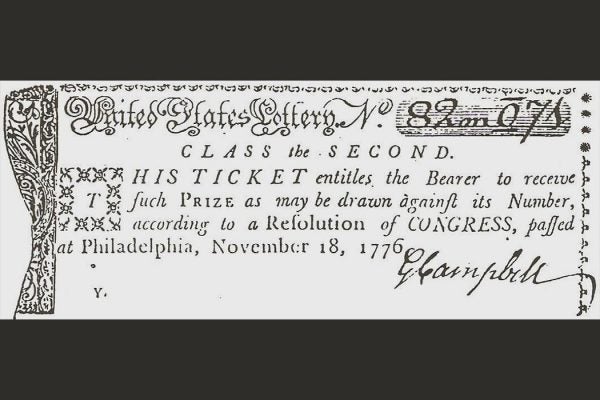 United States Lottery. No. 82m 071
CLASS the SECOND.
THIS TICKET entitles the Bearer to receive
ſuch PRIZE as may be drawn againſt its Number,
according to a Reſolution of CONGRESS, paſſed
at Philadelphia, November 18, 1776
G Campbell
Y.